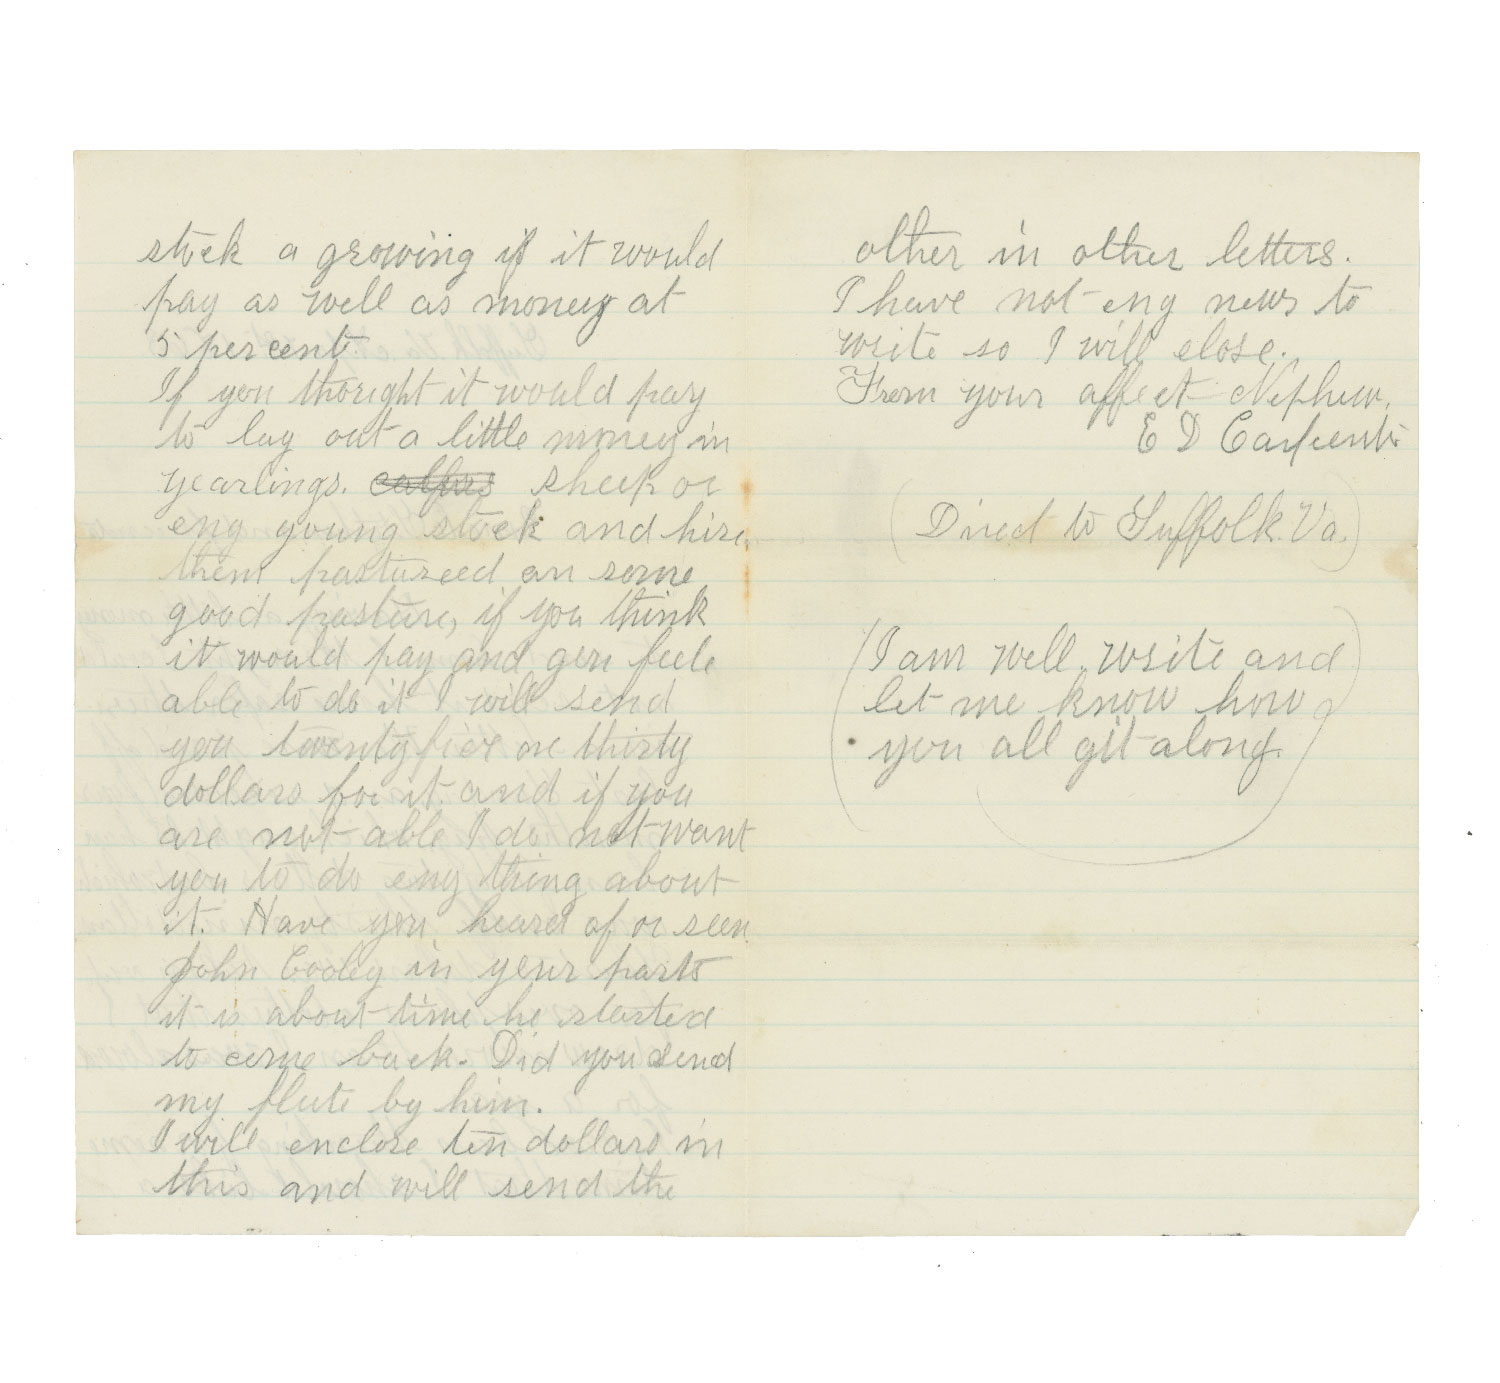 stock a growing if it would
pay as well as money at
5 per cent
If you thought it would pay
to lay out a little money in
yearlings. calfes sheep or
eny young stock and hire
them pastureed on some
good pasture, if you think
it would pay and you feele
able to do it I will send
you twenty five or thirty
dollars for it and if you
are not able I do not want
you to do eny thing about
it. Have you heard of or seen
John Cooley in your parts
it is about time he started
to come back. Did you send
my flute by him.
I will enclose ten dollars in
this and will send the
other in other letters.
I have not eny news to
write so I will close.
From your affect Nephew,
E D Carpenter
(Direct to Suffolk. Va.)
(I am well, write and
let me know how
you all git along.)